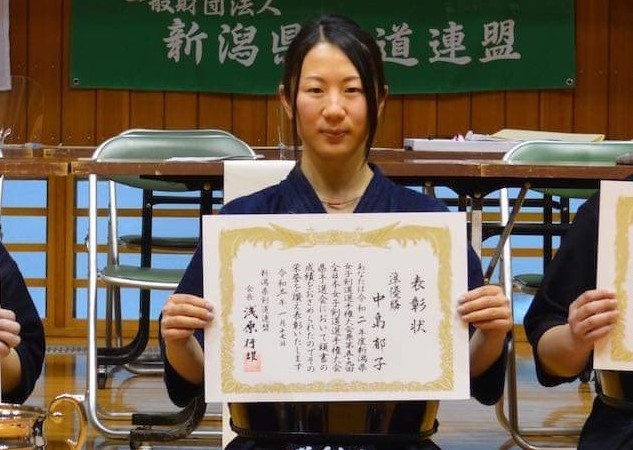 一般財団法人
新潟県剣道連盟
表彰状
準優勝
中島郁子
あなたは令和二年度新潟県
女子剣道選手権大会兼第五九回
全日本女子剣道選手権大会
県予選会において頭書の
成績をおさめられたのでその
栄誉を讃え表彰いたします
令和三年一月十七日
新潟県剣道連盟
会長 浅原行雄